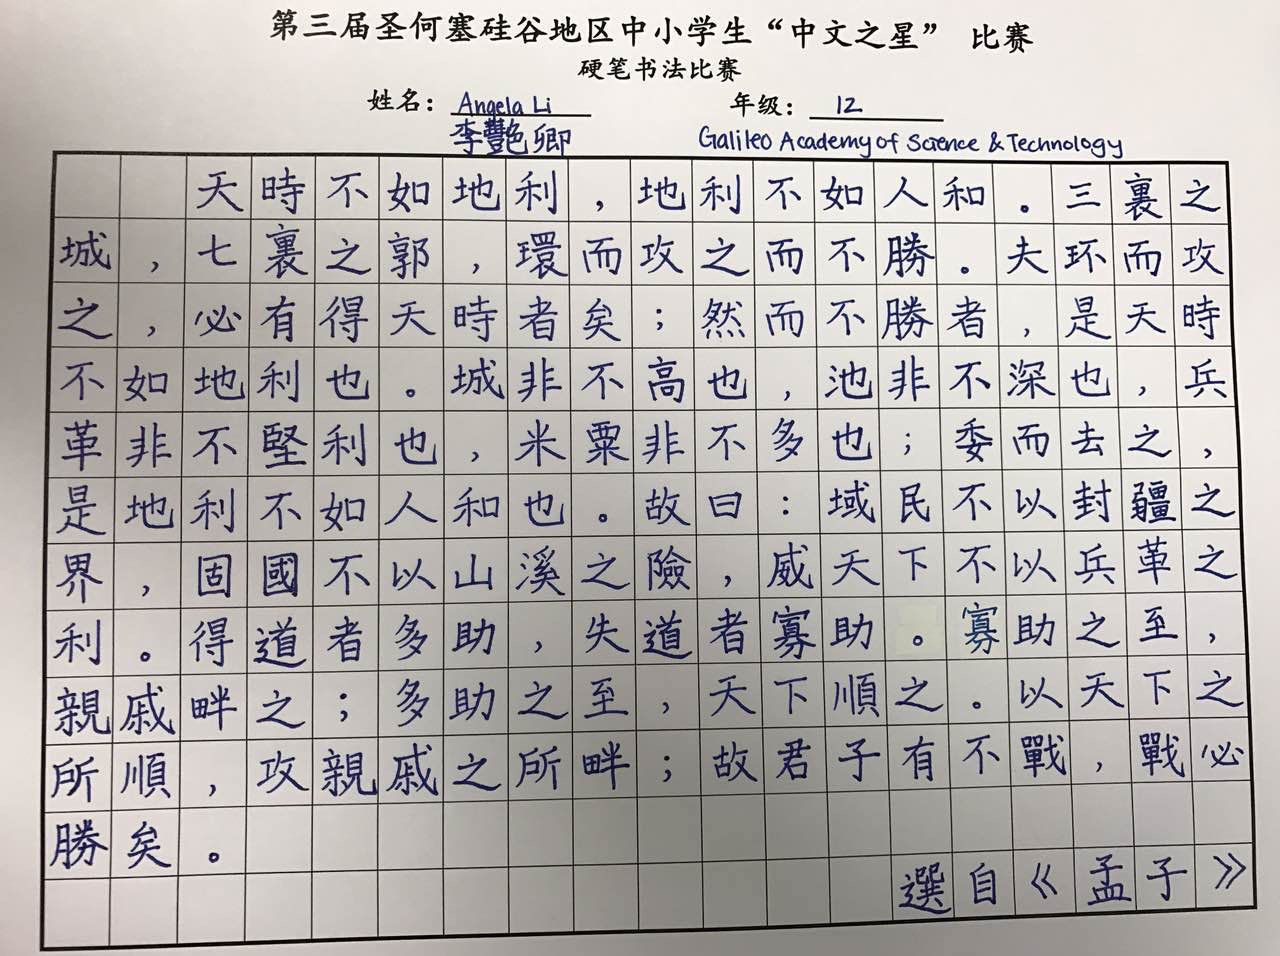 第三届圣何塞硅谷地区中小学生“中文之星” 比赛
硬笔书法比赛
姓名：Angela Li 年级：12
李艷卿 Galileo Academy of Science & Technology
天時不如地利，地利不如人和。三裏之
城，七裏之郭，環而攻之而不勝。夫环而攻
之，必有得天時者矣；然而不勝者，是天時
不如地利也。城非不高也，池非不深也，兵
革非不堅利也，米粟非不多也；委而去之，
是地利不如人和也。故曰：域民不以封疆之
界，固國不以山溪之險，威天下不以兵革之
利。得道者多助，失道者寡助。寡助之至，
親戚畔之；多助之至，天下順之。以天下之
所順，攻親戚之所畔；故君子有不戰，戰必
勝矣。
選自《孟子》